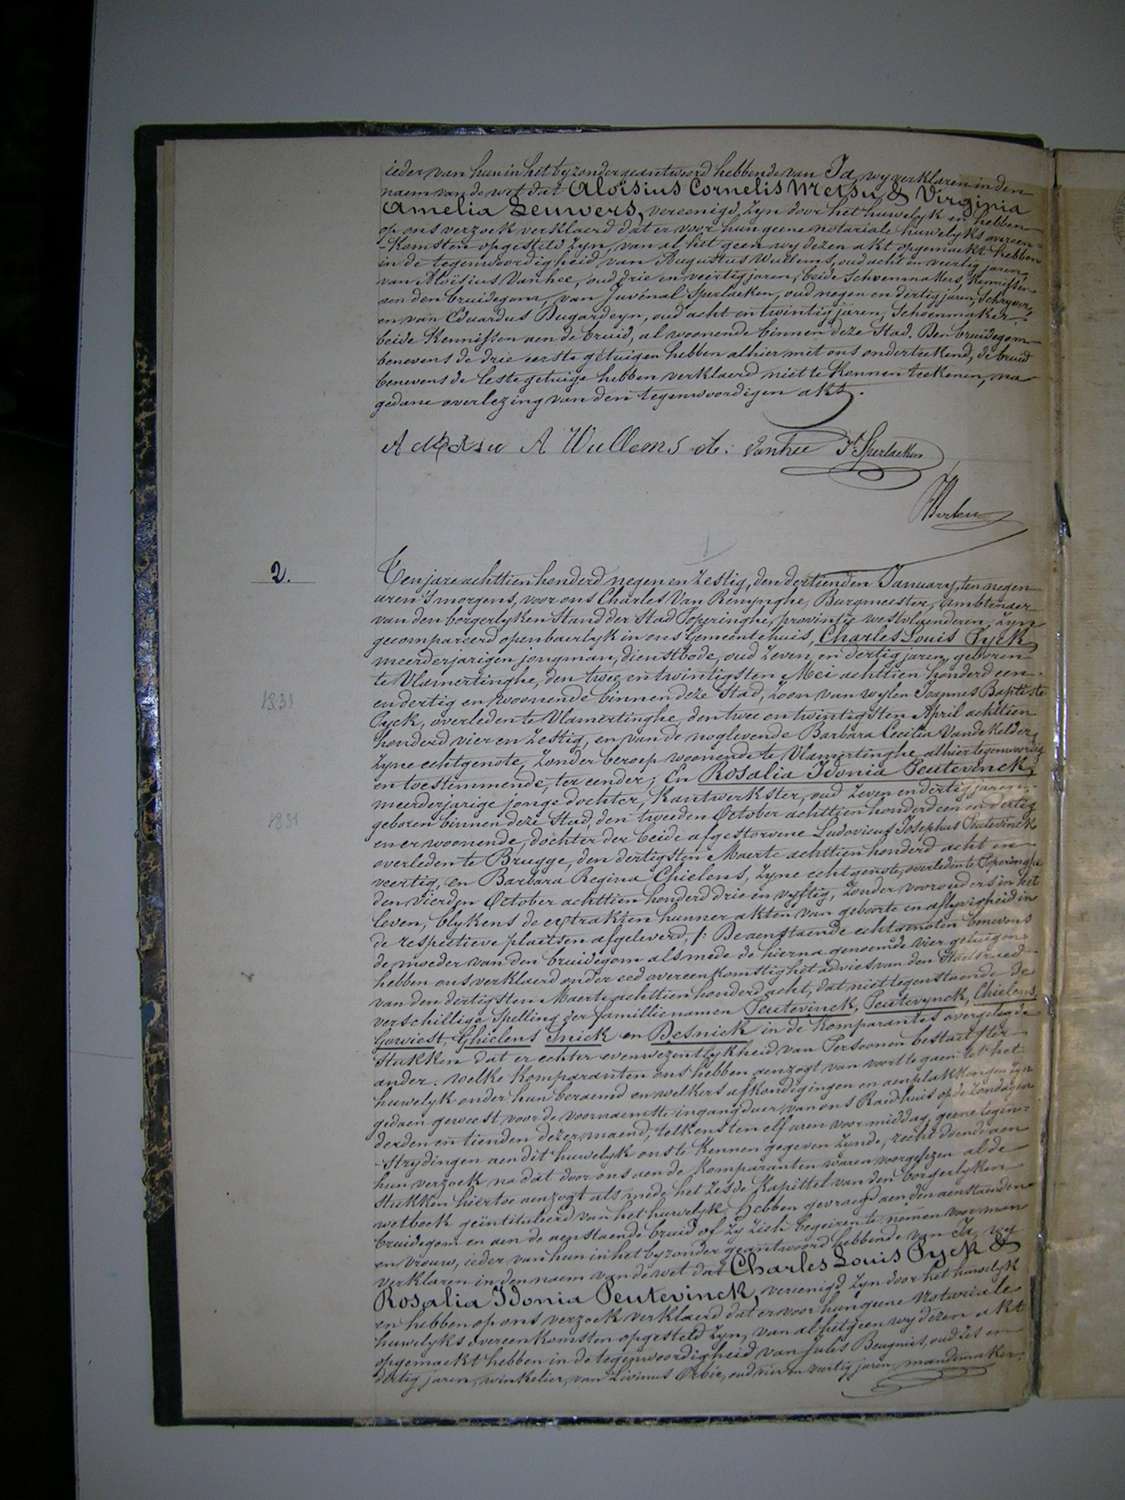 ieder van hun in het byzonder geantwoord hebbende van Ja, wy verklaren in den
naem van de wet dat Aloïsius Cornelis Mersy & Virginia
Amelia Leuwers, vereenigd zyn door het huwelyk en hebben
op ons verzoek verklaerd dat er voor hun geene notariale huwelyks overeen-
-komsten opgesteld zyn, van al het geen wy dezen akt opgemaekt hebben
in de tegenwoordigheid van Augustus Wullems, oud acht en veertig jaren,
van Aloïsius Vanhee, oud drie en veertig jaren, beide Schoenmakers, kennissen
aen den bruidegom, van Juvénal Sperlaeken, oud negen en dertig jaren, Schryver,
en van Eduardus Dugardeyn, oud acht en twintig jaren, Schoenmaker,
beide kennissen aen de bruid, al woonende binnen deze Stad. Den bruidegom
benevens de drie eerste getuigen hebben alhier met ons onderteekend, de bruid
benevens de leste getuige hebben verklaerd niet te konnen teekenen, na
gedane overlezing van den tegenwoordigen akt.
A Wullems Vanhee Sperlaeken
2.
Ten jare achttien honderd negen en zestig, den dertienden January, ten negen
uren 's morgens, voor ons Charles Van Renynghe, Burgmeester, Ambtenaer
van den borgerlyken Stand der Stad Poperinghe, provintie westvlaenderen, zyn
gecompareerd openbaerlyk in ons Gemeentehuis, Charles Louis Pyck,
meerderjarigen jongman, dienstbode, oud zeven en dertig jaren, geboren
te Vlamertinghe, den twee en twintigsten Mei achttien honderd een
en dertig en woonende binnen deze Stad, zoon van wylen Joannes Baptiste
1831
Pyck, overleden te Vlamertinghe, den twee en twintigsten April achttien
honderd vier en zestig, en van de noglevende Barbara Cecilia Vandekelder,
zyne echtgenote, zonder beroep woonende te Vlamertinghe, alhier tegenwoordig
en toestemmende, ter eender; En Rosalia Idonia Peutevinck,
meerderjarige jonge dochter, kantwerkster, oud zeven en dertig jaren,
1831
geboren binnen deze Stad den tweeden October achttien honderd een en dertig
en er woonende, dochter der beide afgestorvene Ludovicus Josephus Peutevinck
overleden te Brugge, den dertigsten Maerte achttien honderd acht en
veertig, en Barbara Regina Chielens, zyne echtgenote, overleden te Poperinghe
den vierden October achttien honderd drie en vyftig, zonder voorouders in het
leven, blykens de extrakten hunner akten van geboorte en aflyvigheid in
de respectieve plaetsen afgeleverd. /: De aenstaende echtgenoten benevens
de moeder van den bruidegom als mede de hierna genoemde vier getuigen
hebben ons verklaerd onder eed overeenkomstig het advies van den Staetsraed
van den dertigsten Maerte achttien honderd acht, dat niet tegenstaende de
verschillige spelling der famillienamen Peutevinck, Peutevynck, Chielens,
Ghielens en Desnick in de komparantes overgelegde
Stukken dat er echter evenwezentlykheid van Persoonen bestaet, ter
ander. Welke komparanten ons hebben aenzogt van voort te gaen tot het
huwelyk onder hun beraemd en welkers afkondigingen en aenplakkingen zyn
gedaen geweest voor de voornaemste ingangdeur van ons Raedhuis op de Zondagen
derden en tienden dezer maend, telkens ten elf uren voormiddag, geene tegen-
-strydingen aen dit huwelyk ons te kennen gegeven zynde, recht doende aen
hun verzoek na dat door ons aen de komparanten waren voorgelezen al de
stukken hiertoe aenzogt als mede het zesde kapittel van den borgerlyken
wetboek geïntituleerd van het huwelyk, Hebben gevraegd aen den aenstaenden
bruidegom en aen de aenstaende bruid of zy zich begeiren te nemen voor man
en vrouw, ieder van hun in het byzonder geantwoord hebbende van Ja, wy
verklaren in den naem van de wet dat Charles Louis Pyck &
Rosalia Idonia Peutevinck, vereenigd zyn door het huwelyk
en hebben op ons verzoek verklaerd dat er voor hun geene Notariale
huwelyks overeenkomsten opgesteld zyn, van al het geen wy dezen akt
opgemaekt hebben in de tegenwoordigheid van Jules Beugnies, oud zes en
dertig jaren, winkelier, van Livinus, oud vier en veertig jaren, mandemaker,